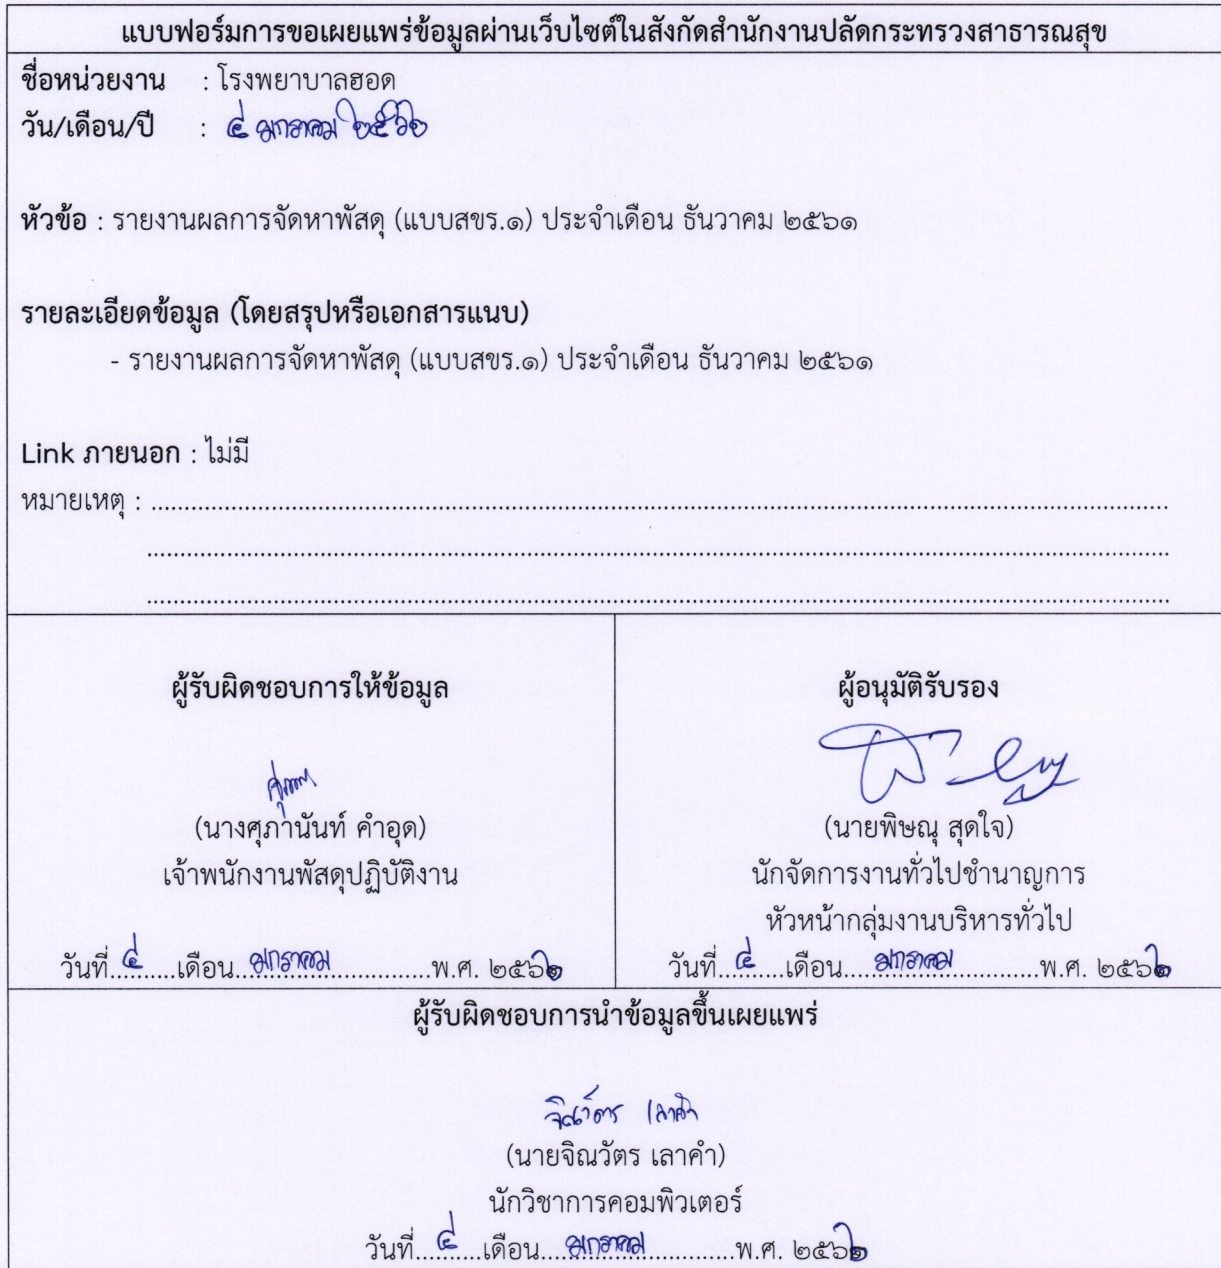 แบบฟอร์มการขอเผยแพร่ข้อมูลผ่านเว็บไซต์ในสังกัดสำนักงานปลัดกระทรวงสาธารณสุข
ชื่อหน่วยงาน : โรงพยาบาลฮอด
วัน/เดือน/ปี : ๔ มกราคม ๒๕๖๒
หัวข้อ : รายงานผลการจัดหาพัสดุ (แบบสขร.๑) ประจำเดือน ธันวาคม ๒๕๖๑
รายละเอียดข้อมูล (โดยสรุปหรือเอกสารแนบ)
- รายงานผลการจัดหาพัสดุ (แบบสขร.๑) ประจำเดือน ธันวาคม ๒๕๖๑
Link ภายนอก : ไม่มี
หมายเหตุ : ................................................................
................................................................
................................................................
ผู้รับผิดชอบการให้ข้อมูล
(นางศุภานันท์ คำอุด)
เจ้าพนักงานพัสดุปฏิบัติงาน
วันที่ ๔ เดือน มกราคม พ.ศ. ๒๕๖๒
ผู้อนุมัติรับรอง
(นายพิษณุ สุดใจ)
นักจัดการงานทั่วไปชำนาญการ
หัวหน้ากลุ่มงานบริหารทั่วไป
วันที่ ๔ เดือน มกราคม พ.ศ. ๒๕๖๒
ผู้รับผิดชอบการนำข้อมูลขึ้นเผยแพร่
จิณวัตร เลาคำ
(นายจิณวัตร เลาคำ)
นักวิชาการคอมพิวเตอร์
วันที่ ๔ เดือน มกราคม พ.ศ. ๒๕๖๒